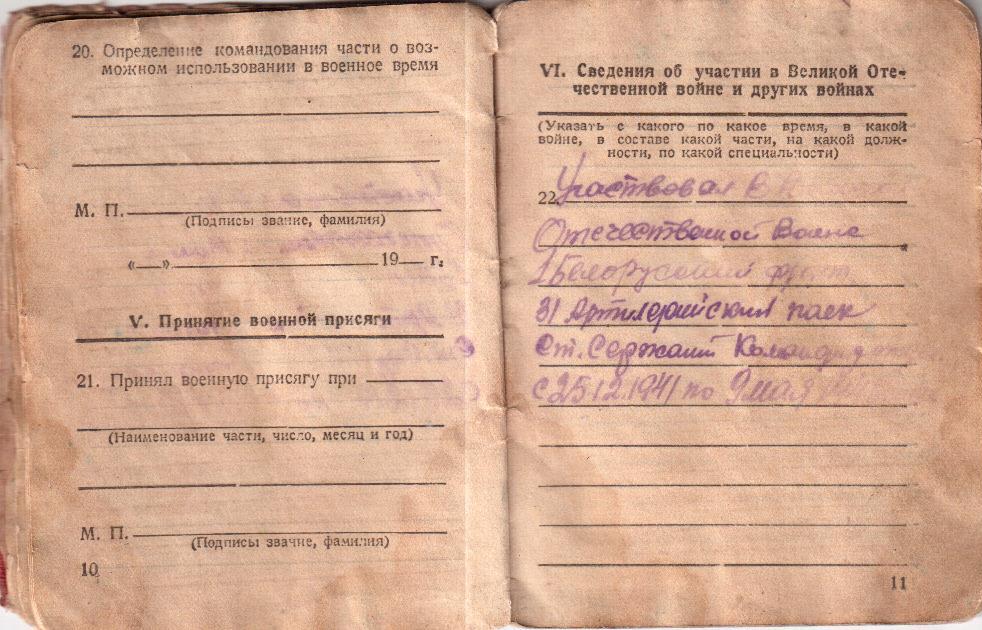 20. Определение командования части о воз-
можном использовании в военное время
М. П.
(Подписы звание, фамилия)
«__»________ 19__ г.
V. Принятие военной присяги
21. Принял военную присягу при
(Наименование части, число, месяц и год)
М. П.
(Подписы звание, фамилия)
10
VI. Сведения об участии в Великой Оте-
чественной войне и других войнах
(Указать с какого по какое время, в какой
войне, в составе какой части, на какой долж-
ности, по какой специальности)
22. Участвовал в
Отечественной Воине
1 Белорусский фронт
31 Артилерийский полк
Ст. Сержант Командир
с 25.12.1941 по 9 мая
11